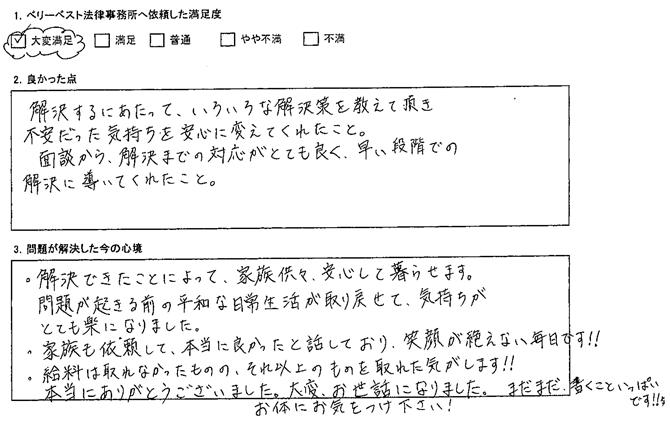 1. ベリーベスト法律事務所へ依頼した満足度
大変満足 満足 普通 やや不満 不満
2. 良かった点
解決するにあたって、いろいろな解決策を教えて頂き
不安だった気持ちを安心に変えてくれたこと。
面談から、解決までの対応がとても良く、早い段階での
解決に導いてくれたこと。
3. 問題が解決した今の心境
。解決できたことによって、家族供々、安心して暮らせます。
問題が起きる前の平和な日常生活が取り戻せて、気持ちが
とても楽になりました。
。家族も依頼して、本当に良かったと話しており、笑顔が絶えない毎日です!!
。給料は取れなかったものの、それ以上のものを取れた気がします!!
本当にありがとうございました。大変、お世話になりました。 まだまだ、書くこといっぱい
です!!
お体にお気をつけ下さい!